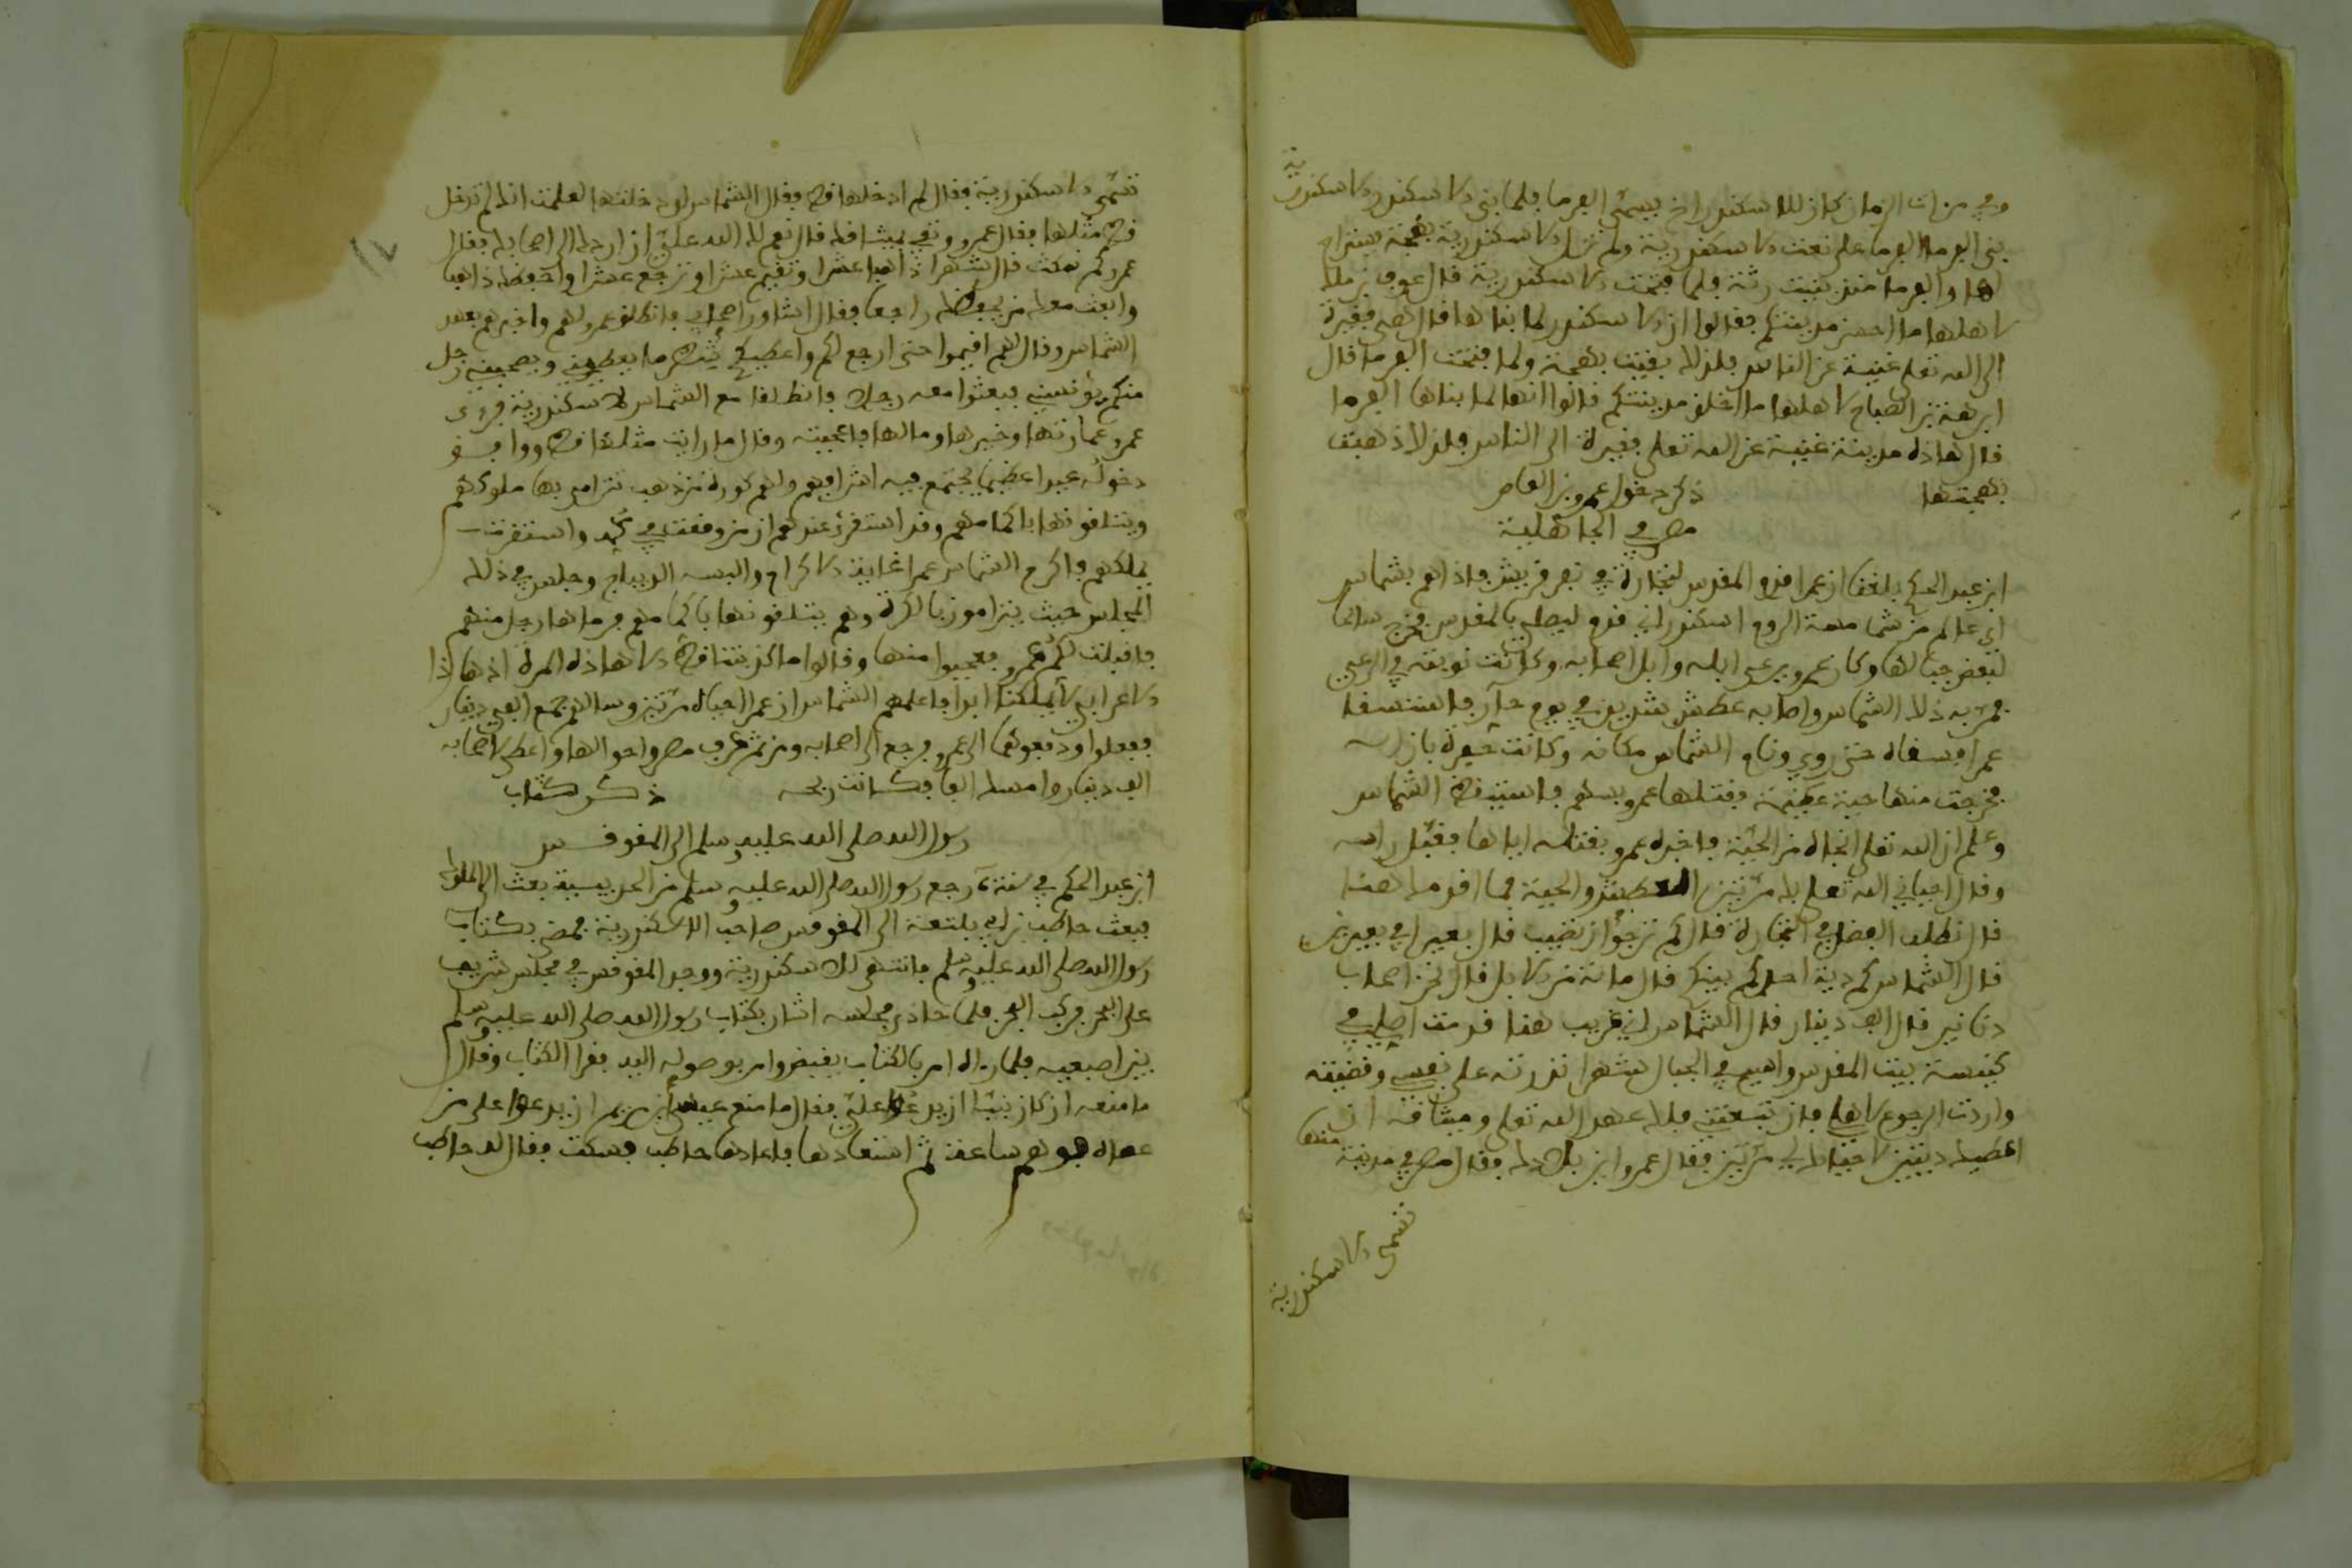 وفي من ات الزمان كان للاسكندر اخ يسمى الفرما فلما بنى الاسكندر الاسكندرية
بنى الفرما الفرما على نعت الاسكندرية ولم تزل الاسكندرية بهجة
لها والفرما منذ بنيت رثة فلما فتحت الاسكندرية قال عوف بن ملك
لاهلها ما احسن مدينتكم فقالوا ان الاسكندر لما بناها قال هي فقيرة
الى الله تعلى غنية عن الناس فلذلك بقيت بهجة ولما فتحت الفرما قال
ابرهة بن الصباح لاهلها ما اخلق مدينتكم قالوا انها لما بناها الفرما
قال هاذه مدينة غنية عن الله تعلى فقيرة الى الناس فلذلك ذهبت
بهجتها
ذكر دخول عمرو بن العاص
مصر في الجاهلية
ابن عبد الحكم بلغنا ان عمرا قدم المقدس لتجارة في نفر قريش فاذا هم بشماس
اي عالم من شمامسة الروم اسكندراني قدم ليصلي بالمقدس فخرج سائحا
لبعض جبالها وكان عمرو يرعى ابله وابل اصحابه وكانت نوبته في الرعي
فمر به ذلك الشماس واصابه عطش شديد في يوم حار فاستسقا
عمرا فسقاه حتى روي ونام الشماس مكانه وكانت حفرة بازائه
فخرجت منها حية عظيمة فقتلها عمرو بسهم فاستيقظ الشماس
وعلم ان الله تعلى انجاه من الحية فاخبره عمرو بقتله اياها فقبل راسه
وقال احياني الله تعلى بك مرتين العطش والحية فما اقدمك هنا
قال نطلب الفضل في التجارة قال كم ترجوا ان تصيب قال بعيرا في بعيرين
قال الشماس كم دية احدكم بينكم قال مائة من الابل قال نحن اصحاب
دنانير قال الف دينار قال الشماس اني غريب هنا قدمت اصلي في
كنيسة بيت المقدس واسيح في الجبال شهرا نذرته على نفسي وقضيته
واردت الرجوع لاهلي فان تبعتني فلك عهد الله تعلى وميثاقه ان
اعطيك ديتين لاحيائك لي مرتين فقال عمرو اين بلادك فقال مصر في مدينة منها
تسمى الاسكندرية
١٧
تسمى الاسكندرية فقال لم ادخلها قط فقال الشماس لو دخلتها لعلمت انك لم تدخل
قط مثلها فقال عمرو وتفي بميثاقك قال نعم لك الله علي ان اردك الى اصحابك فقال
عمرو كم نمكث قال شهرا ذاهبا عشرا وتقيم عشرا وترجع عشرا واحفظك ذاهبا
وابعث معك من يحفظك راجعا فقال اشاور اصحابي فانطلق عمرو لهم واخبرهم بعهد
الشماس وقال لهم اقيموا حتى ارجع لكم واعطيكم شطر ما يعطيني ويصحبني رجل
منكم يؤنسني فبعثوا معه رجلا فانطلقا مع الشماس لاسكندرية فرءى
عمرو عمارتها وخيرها ومالها فاعجبته وقال ما رايت مثلها قط ووافق
دخوله عيدا عظيما يجتمع فيه اشرافهم ولهم كورة من ذهب يترامى بها ملوكهم
ويتلقونها باكمامهم وقد استقرئ عندهم ان من وقعت في كمه واستقرت
يملكهم فاكرم الشماس عمرا غاية الاكرام والبسه الديباج وجلس في ذلك
المجلس حيث يترامون بالكرة وهم يتلقونها باكمامهم فرماها رجل منهم
فاقبلت لكم عمرو فعجبوا منها وقالوا ما كذبتنا قط الا هاذه المرة اهاذا
الاعرابي يملكنا ابدا فاعلمهم الشماس ان عمرا احياه مرتين وسالهم جمع الفي دينار
ففعلوا ودفعوها الى عمرو فرجع الى اصحابه ومن ثم عرف مصر واحوالها واعطى اصحابه
الف دينار وامسك الفا فكانت ربحه
ذكر كتاب
رسول الله صلى الله عليه وسلم الى المقوقس
ابن عبد الحكم في سنة رجع رسول الله صلى الله عليه وسلم من الحديبية بعث الى الملوك
فبعث حاطب بن ابي بلتعة الى المقوقس صاحب الاسكندرية فمضى بكتاب
رسول الله صلى الله عليه وسلم فانتهى للاسكندرية ووجد المقوقس في مجلس شريف
على البحر فركب البحر فلما حاذى مجلسه اشار بكتاب رسول الله صلى الله عليه وسلم
بين اصبعيه فلما راه امر بالكتاب فقبض وامر بوصوله اليه فقرا الكتاب وقال
ما منعه ان كان نبيا ان يدعوا علي فقال ما منع عيسى ابن مريم ان يدعوا على من
عصاه فوهم ساعة ثم استعادها فاعادها حاطب فسكت فقال له حاطب